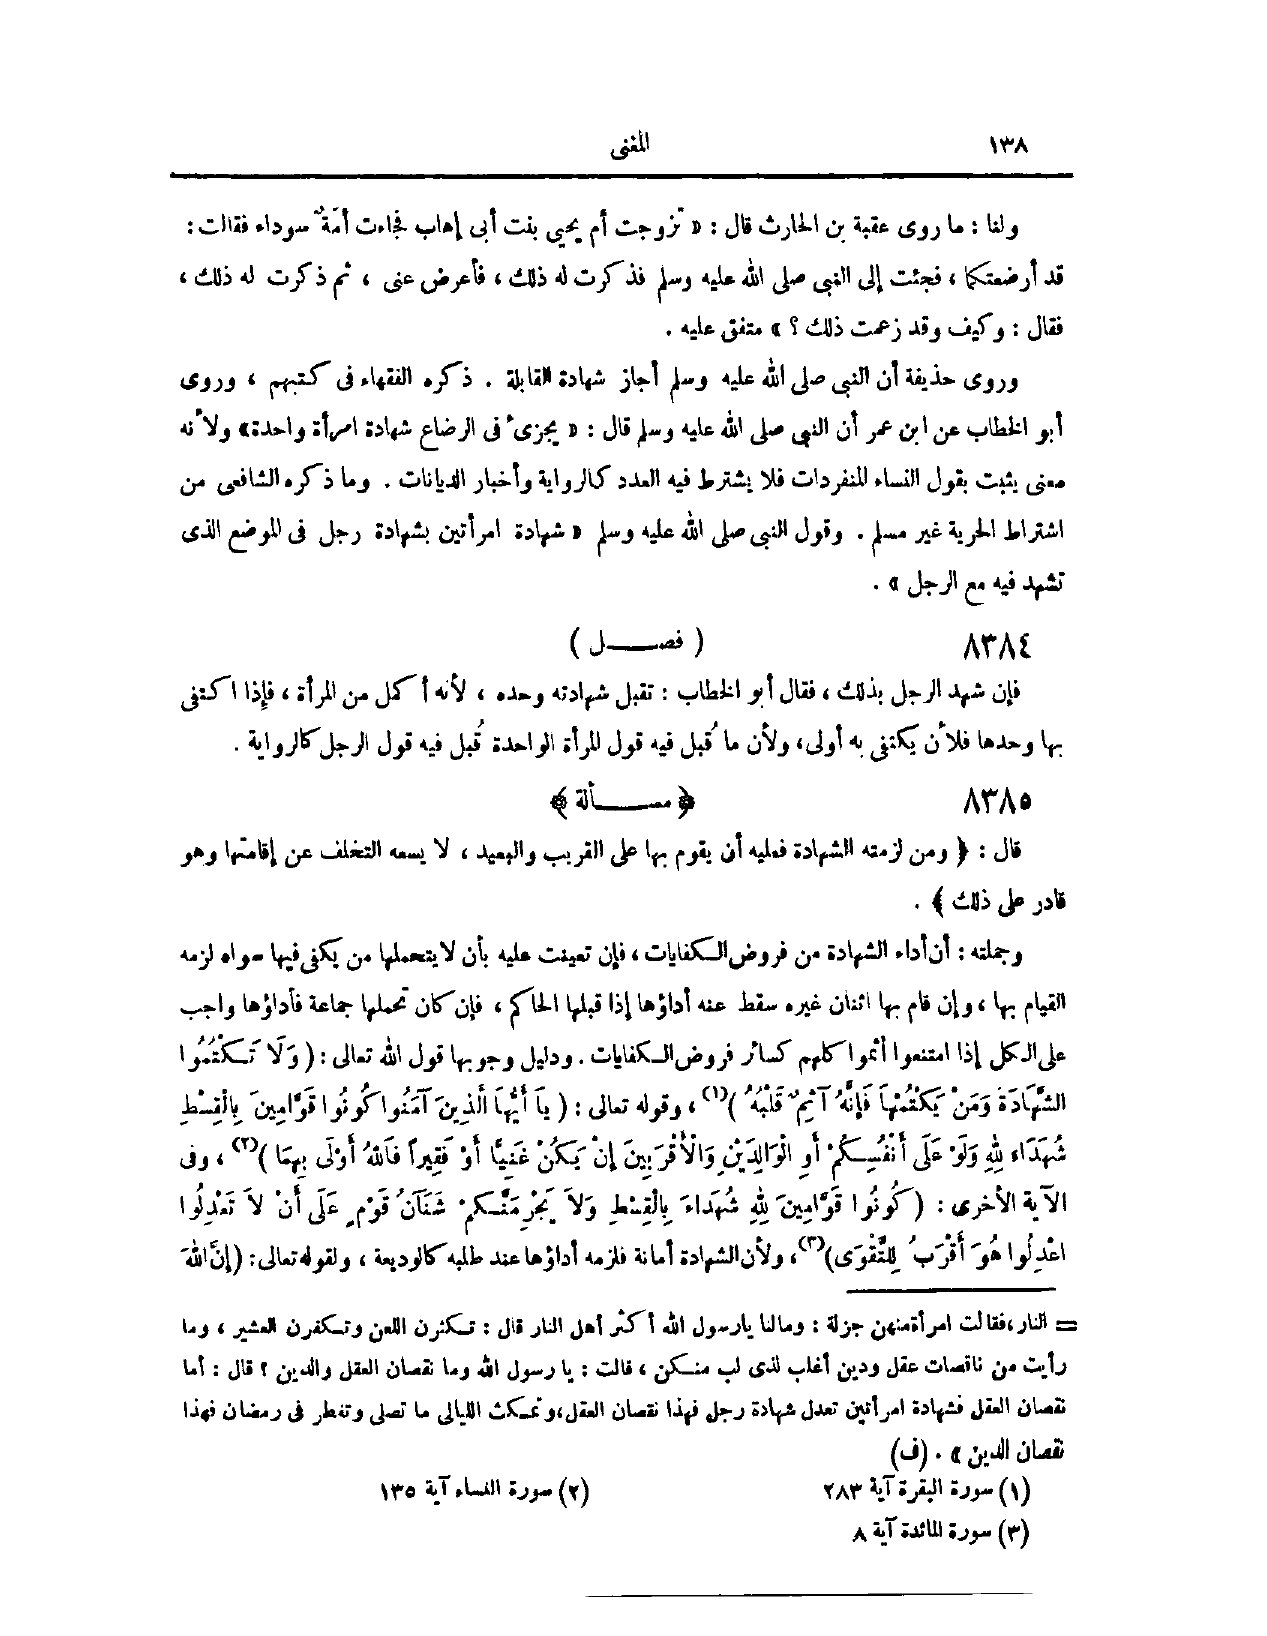 ١٣٨ المغنى
ولنا : ما روى عقبة بن الحارث قال : « تزوجت أم يحيى بنت أبى إهاب فجاءت أمَةٌ سوداء فقالت :
قد أرضعتكما ، فجئت إلى النبى صلى الله عليه وسلم فذكرت له ذلك ، فأعرض عنى ، ثم ذكرت له ذلك ،
فقال : وكيف وقد زعمت ذلك ؟ » متفق عليه .
وروى حذيفة أن النبى صلى الله عليه وسلم أجاز شهادة القابلة . ذكره الفقهاء فى كتبهم ، وروى
أبو الخطاب عن ابن عمر أن النبى صلى الله عليه وسلم قال : « يجزىُ فى الرضاع شهادة امرأة واحدة» ولأنه
معنى يثبت بقول النساء المنفردات فلا يشترط فيه العدد كالرواية وأخبار الديانات . وما ذكره الشافعى من
اشتراط الحرية غير مسلم . وقول النبى صلى الله عليه وسلم « شهادة امرأتين بشهادة رجل فى الموضع الذى
تشهد فيه مع الرجل » .
٨٣٨٤ ( فصـــل )
فإن شهد الرجل بذلك ، فقال أبو الخطاب : تقبل شهادته وحده ، لأنه أكمل من المرأة ، فإذا اكتفى
بها وحدها فلأن يكتفى به أولى، ولأن ما قُبل فيه قول المرأة الواحدة قُبل فيه قول الرجل كالرواية .
٨٣٨٥ ﴿ مســـألة ﴾
قال : ﴿ ومن لزمته الشهادة فعليه أن يقوم بها على القريب والبعيد ، لا يسعه التخلف عن إقامتها وهو
قادر على ذلك ﴾ .
وجملته : أن أداء الشهادة من فروض الكفايات ، فإن تعينت عليه بأن لا يتحملها من يكفى فيها سواه لزمه
القيام بها ، وإن قام بها اثنان غيره سقط عنه أداؤها إذا قبلها الحاكم ، فإن كان تحملها جماعة فأداؤها واجب
على الكل إذا امتنعوا أثموا كلهم كسائر فروض الكفايات . ودليل وجوبها قول الله تعالى : ( وَلَا تَكْتُمُوا
الشَّهَادَةَ وَمَنْ يَكْتُمْهَا فَإِنَّهُ آثِمٌ قَلْبُهُ )(١) ، وقوله تعالى : ( يَاأَيُّهَا الَّذِينَ آمَنُوا كُونُوا قَوَّامِينَ بِالْقِسْطِ
شُهَدَاءَ لِلهِ وَلَوْ عَلَى أَنْفُسِكُمْ أَوِ الْوَالِدَيْنِ وَالْأَقْرَبِينَ إِنْ يَكُنْ غَنِيًّا أَوْ فَقِيراً فَاللهُ أَوْلَى بِهِمَا )(٢) ، وفى
الآية الأخرى : ( كُونُوا قَوَّامِينَ لِلهِ شُهَدَاءَ بِالْقِسْطِ وَلاَ يَجْرِمَنَّكُمْ شَنَآنُ قَوْمٍ عَلَى أَنْ لاَ تَعْدِلُوا
اعْدِلُوا هُوَ أَقْرَبُ لِلتَّقْوَى)(٣)، ولأن الشهادة أمانة فلزمه أداؤها عند طلبه كالوديعة ، ولقوله تعالى : (إِنَّ اللهَ
= النار، فقالت امرأة منهن جزلة : ومالنا يارسول الله أكثر أهل النار قال : تكثرن اللعن وتكفرن العشير ، وما
رأيت من ناقصات عقل ودين أغلب لذى لب منكن ، قالت : يا رسول الله وما نقصان العقل والدين ؟ قال : أما
نقصان العقل فشهادة امرأتين تعدل شهادة رجل فهذا نقصان العقل، وتمكث الليالى ما تصلى وتفطر فى رمضان فهذا
نقصان الدين » . (ف)
(١) سورة البقرة آية ٢٨٣ (٢) سورة النساء آية ١٣٥
(٣) سورة المائدة آية ٨